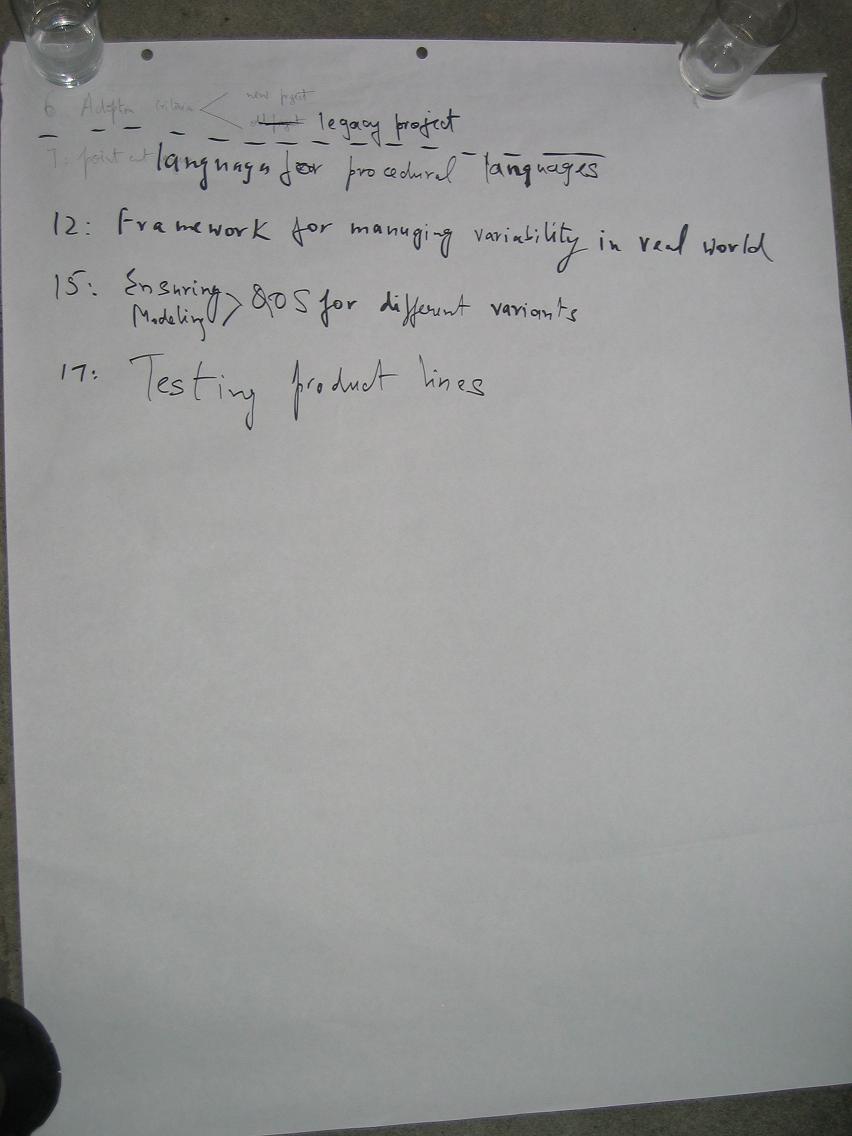 6 Adoption criteria < new project
old project legacy project
7: point cut languages for procedural languages
12: Framework for managing variability in real world
15: Ensuring
Modeling > QOS for different variants
17: Testing product lines